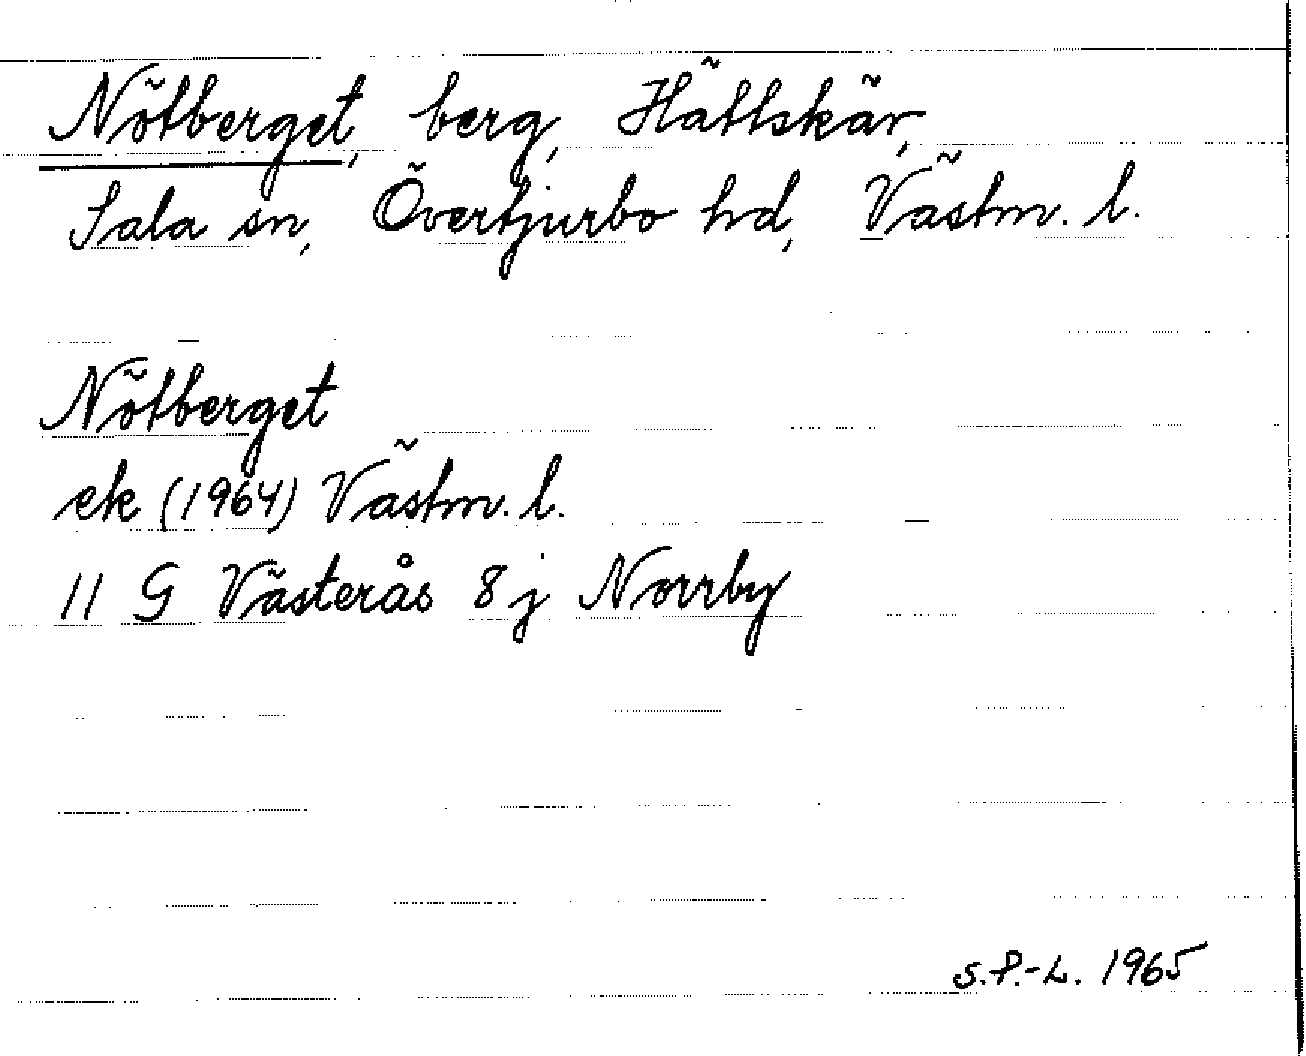 Nötberget, berg, Hällskär,
Sala sn, Övertjurbo hd, Västm. l.
Nötberget
ek (1964) Västm. l.
11 G Västerås 8 j Norrby
S.P.-L. 1965